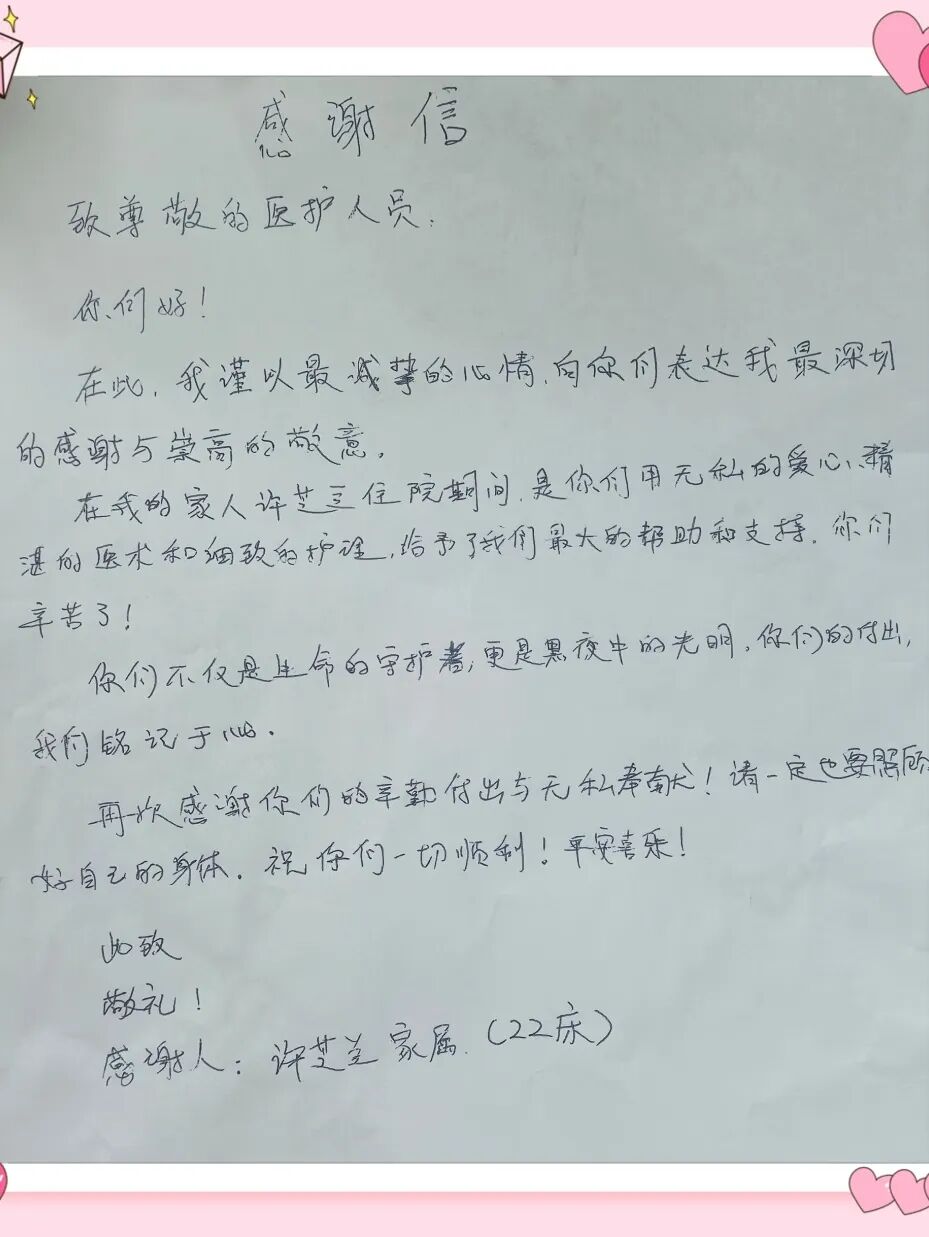 感谢信
致尊敬的医护人员:
你们好!
在此,我谨以最诚挚的心情,向你们表达我最深切
的感谢与崇高的敬意。
在我的家人许芝兰住院期间,是你们用无私的爱心、精
湛的医术和细致的护理,给予了我们最大的帮助和支持。你们
辛苦了!
你们不仅是生命的守护者,更是黑夜中的光明。你们的付出,
我们铭记于心。
再一次感谢你们的辛勤付出与无私奉献!请一定也要照顾
好自己的身体。祝你们一切顺利!平安喜乐!
此致
敬礼!
感谢人:许芝兰家属.(22床)